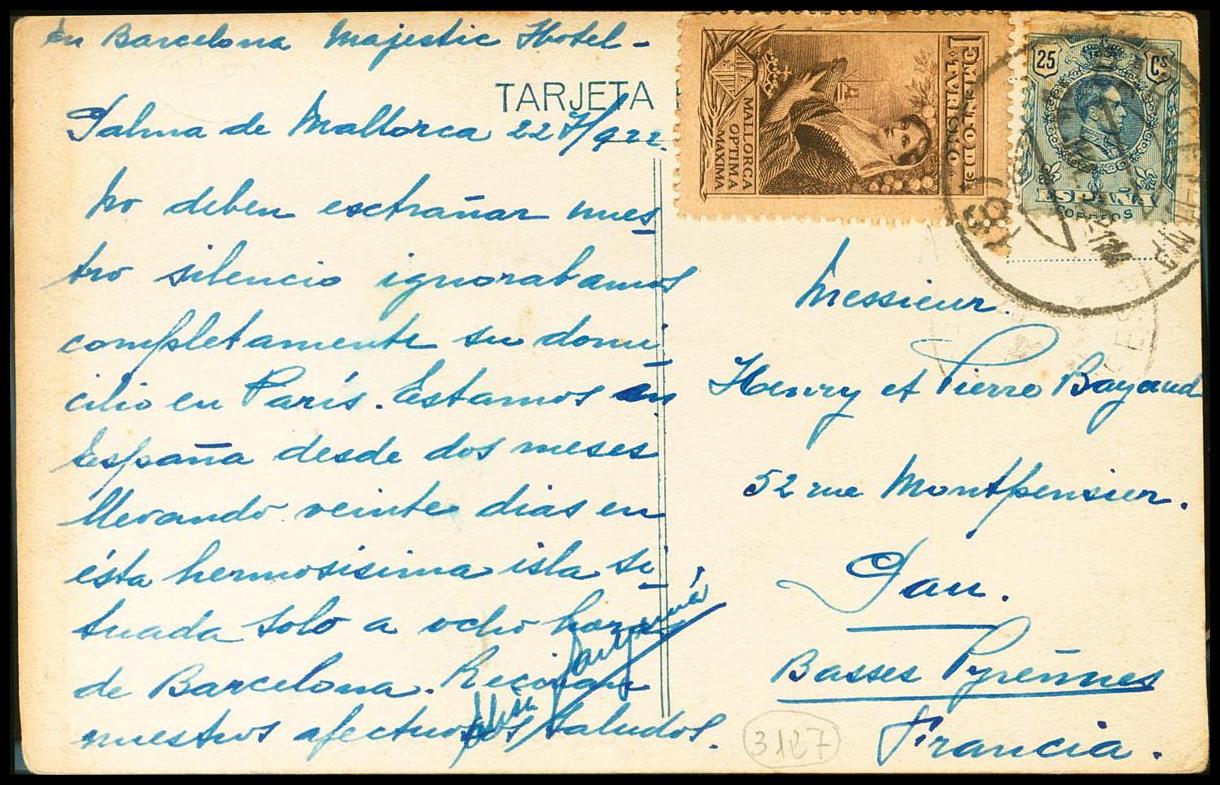 En Barcelona Majestic Hotel -
TARJETA
Palma de Mallorca 22 7/922.
No deben extrañar nues
tro silencio ignorabamos
completamente su domi
cilio en París. Estamos en
España desde dos meses
llevando veinte dias en
ésta hermosisima isla si
tuada solo a ocho horas
de Barcelona. Reciban
nuestros afectuosos saludos.
FOMENTO DEL TURISMO
MALLORCA
OPTIMA
MAXIMA
25 Cs
ESPAÑA
CORREOS
Messieur.
Henry et Pierre Bayaud
52 rue Montpensier.
Pau.
Basses Pyreñnes
Francia.
3127